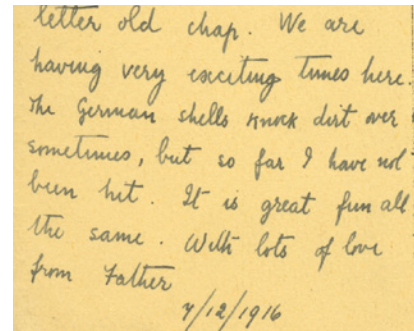 letter old chap. We are
having very exciting times here.
The German shells knock dirt over
sometimes, but so far I have not
been hit. It is great fun all
the same. With lots of love
from Father
7/12/1916